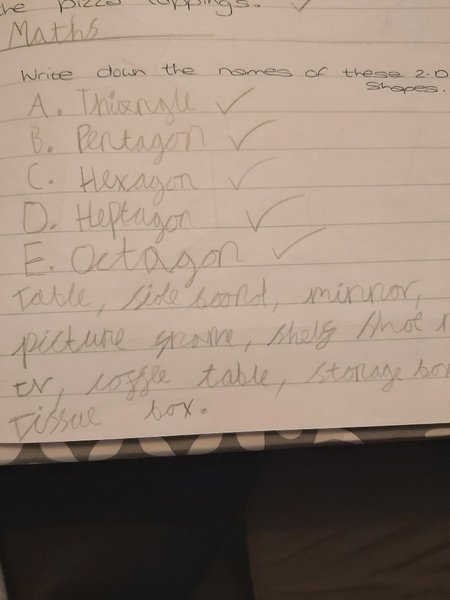 the pizza toppings.
Maths
Write down the names of these 2-D
Shapes.
A. Triangle
B. Pentagon
C. Hexagon
D. Heptagon
E. Octagon
Table, side board, mirror,
picture frame, shelf shoe
tv, coffee table, storage box
Tissue box.